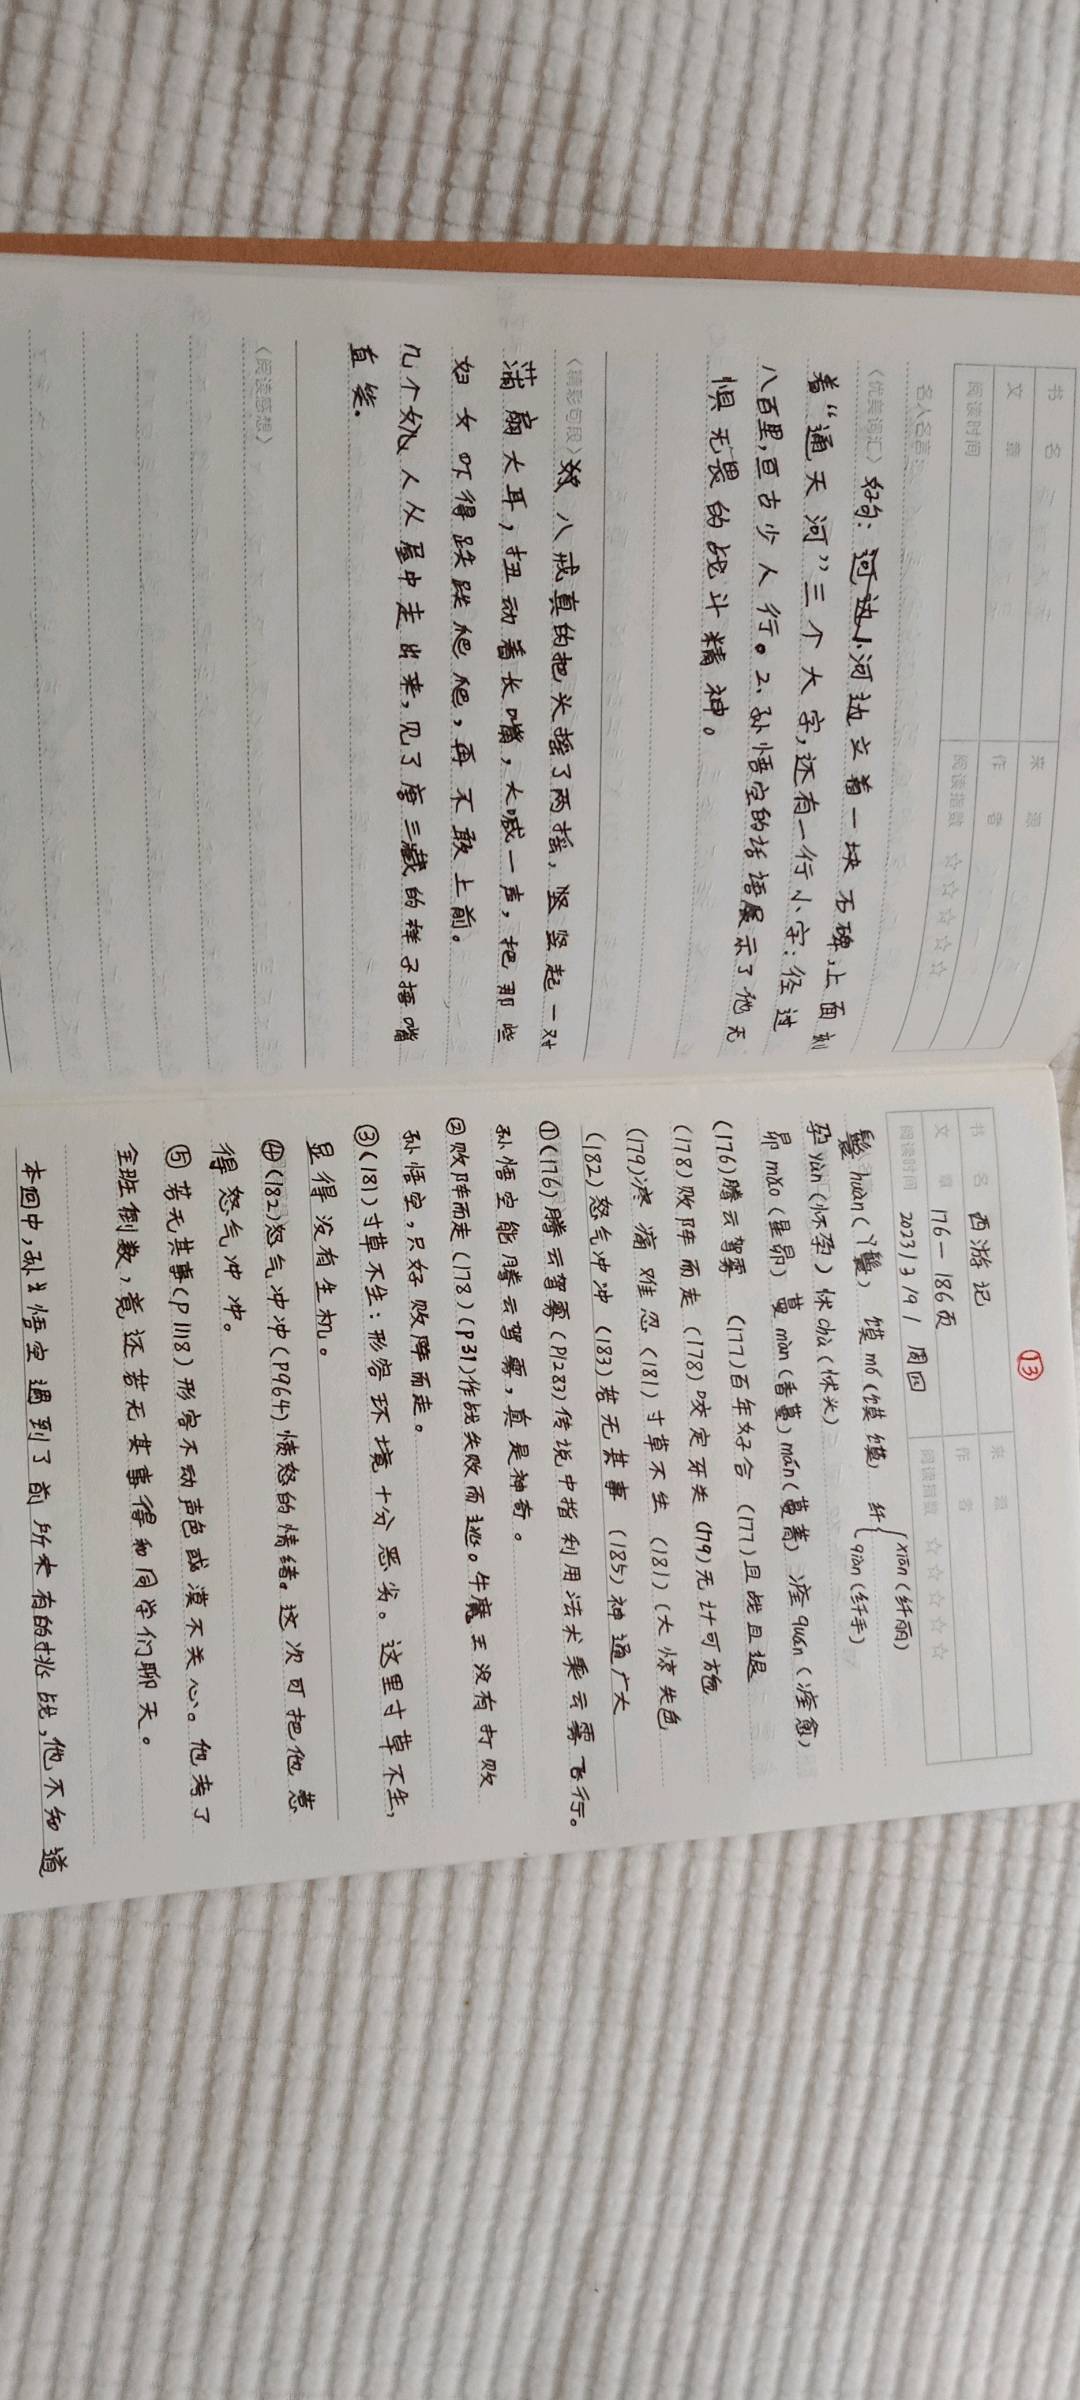 书 名
来 源
文 章
作 者
阅读时间
阅读指数 ☆☆☆☆☆
名人名言：
〈优美词汇〉好句：河边小河边立着一块石碑，上面刻
着“通天河”三个大字，还有一行小字：径过
八百里，亘古少人行。2、孙悟空的话语展示了他无
惧无畏的战斗精神。
〈精彩句段〉八戒真的把头摇了两摇，竖竖起一对
蒲扇大耳，扭动着长嘴，大喊一声，把那些
妇女吓得跌跌爬爬，再不敢上前。
几个妖人从屋中走出来，见了唐三藏的样子捂嘴
直笑。
〈阅读感想〉
⑬
书 名 西游记
来 源
文 章 176—186页
作 者
阅读时间 2023/3/9/ 周四
阅读指数 ☆☆☆☆☆
鬟huán(丫鬟) 馍mó(馍馍) 纤{xiān(纤丽) qiàn(纤手)
孕yùn(怀孕) 怵chù(怵米)
昴mǎo(星昴) 蔓màn(香蔓) mán(蔓菁) 痊quán(痊愈)
(176)腾云驾雾 (177)百年好合 (177)且战且退
(178)败阵而走 (178)咬定牙关 (179)无计可施
(179)疼痛难忍 (181)寸草不生 (181)(大惊失色
(182)怒气冲冲 (183)若无其事 (185)神通广大
①(176)腾云驾雾(P1283)传说中指利用法术乘云雾飞行。
孙悟空能腾云驾雾，真是神奇。
②败阵而走(178)(P31)作战失败而逃。牛魔王没有打败
孙悟空，只好败阵而走。
③(181)寸草不生：形容环境十分恶劣。这里寸草不生，
显得没有生机。
④(182)怒气冲冲(P964)愤怒的情绪。这次可把他惹
得怒气冲冲。
⑤若无其事(P1118)形容不动声色或漠不关心。他考了
全班倒数，竟还若无其事得和同学们聊天。
本回中，孙悟空遇到了前所未有的挑战，他不知道